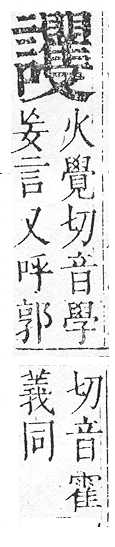 火覺切音學
妄言又呼郭
切音霍
義同